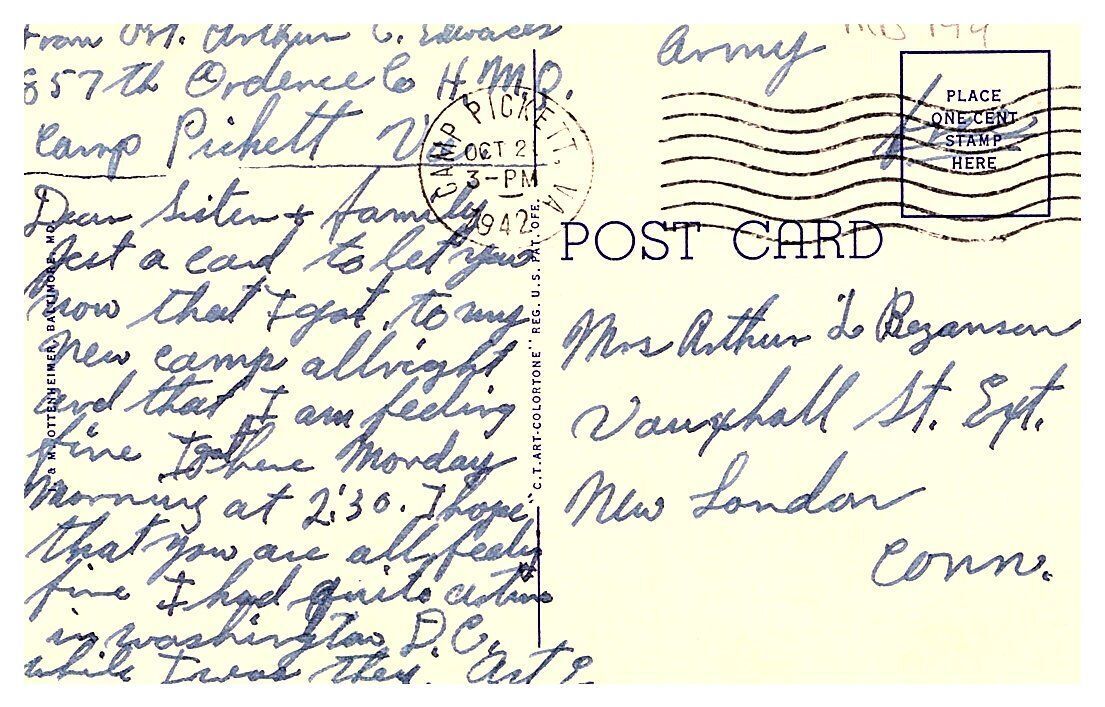 from Pvt. Arthur C. Edwards
857th Ordence Co H.M.Q.
Camp Pickett Va
Dear Sister & family
Just a card to let you
now that I got to my
New camp allright
and that I am feeling
fine I got here Monday
Morning at 2:30. I hope
that you are all feeling
fine I had quite a time
in Washington D.C.
while I was they. Art E
& M. OTTENHEIMER, BALTIMORE, MD.
"C.T. ART-COLORTONE" REG. U.S. PAT. OFF.
CAMP PICKETT, VA
OCT 2
3-PM
1942
Army
Free
PLACE
ONE CENT
STAMP
HERE
POST CARD
Mrs Arthur L Bezanson
Vauxhall St. Ext.
New London
Conn.